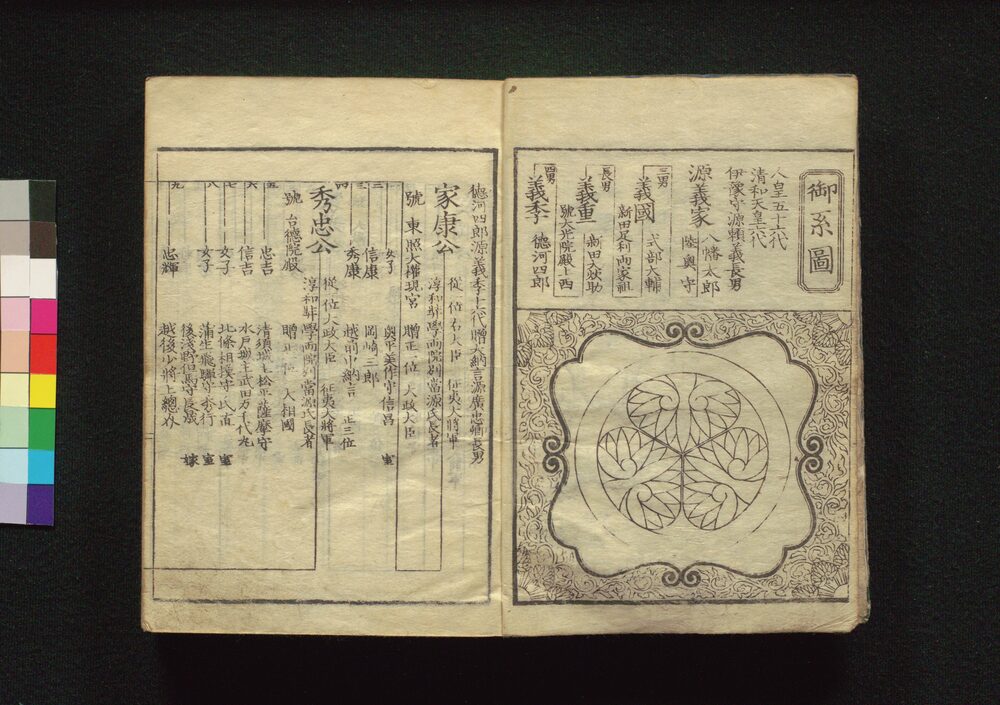 御系圖
人皇五十六代
清和天皇六代
伊豫守源賴義長男
源義家 八幡太郎
陸奥守
三男
義國 式部大輔
新田足利両家祖
長男
義重 新田大炊助
號大光院殿上西
四男
義季 德河四郎
德河四郎源義季十七代贈大納言源廣忠卿長男
家康公 從一位右大臣 征夷大將軍
淳和奘學両院別當源氏長者
號 東照大權現宮 贈正一位 大政大臣
女子 奥平美作守信昌 室
二 信康 岡崎三郎
三 秀康 越前中納言 正三位
四
秀忠公 從一位大政大臣 征夷大將軍
淳和奘學両院別當源氏長者
號 台德院殿 贈正一位 大相國
五 忠吉 清須城主松平薩摩守
六 信吉 水戸城主武田万千代丸
七 女子 北條相摸守氏直 室
八 女子 蒲生飛驒守秀行 室
後浅野但馬守長晟 嫁
九 忠輝 越後少將上總介